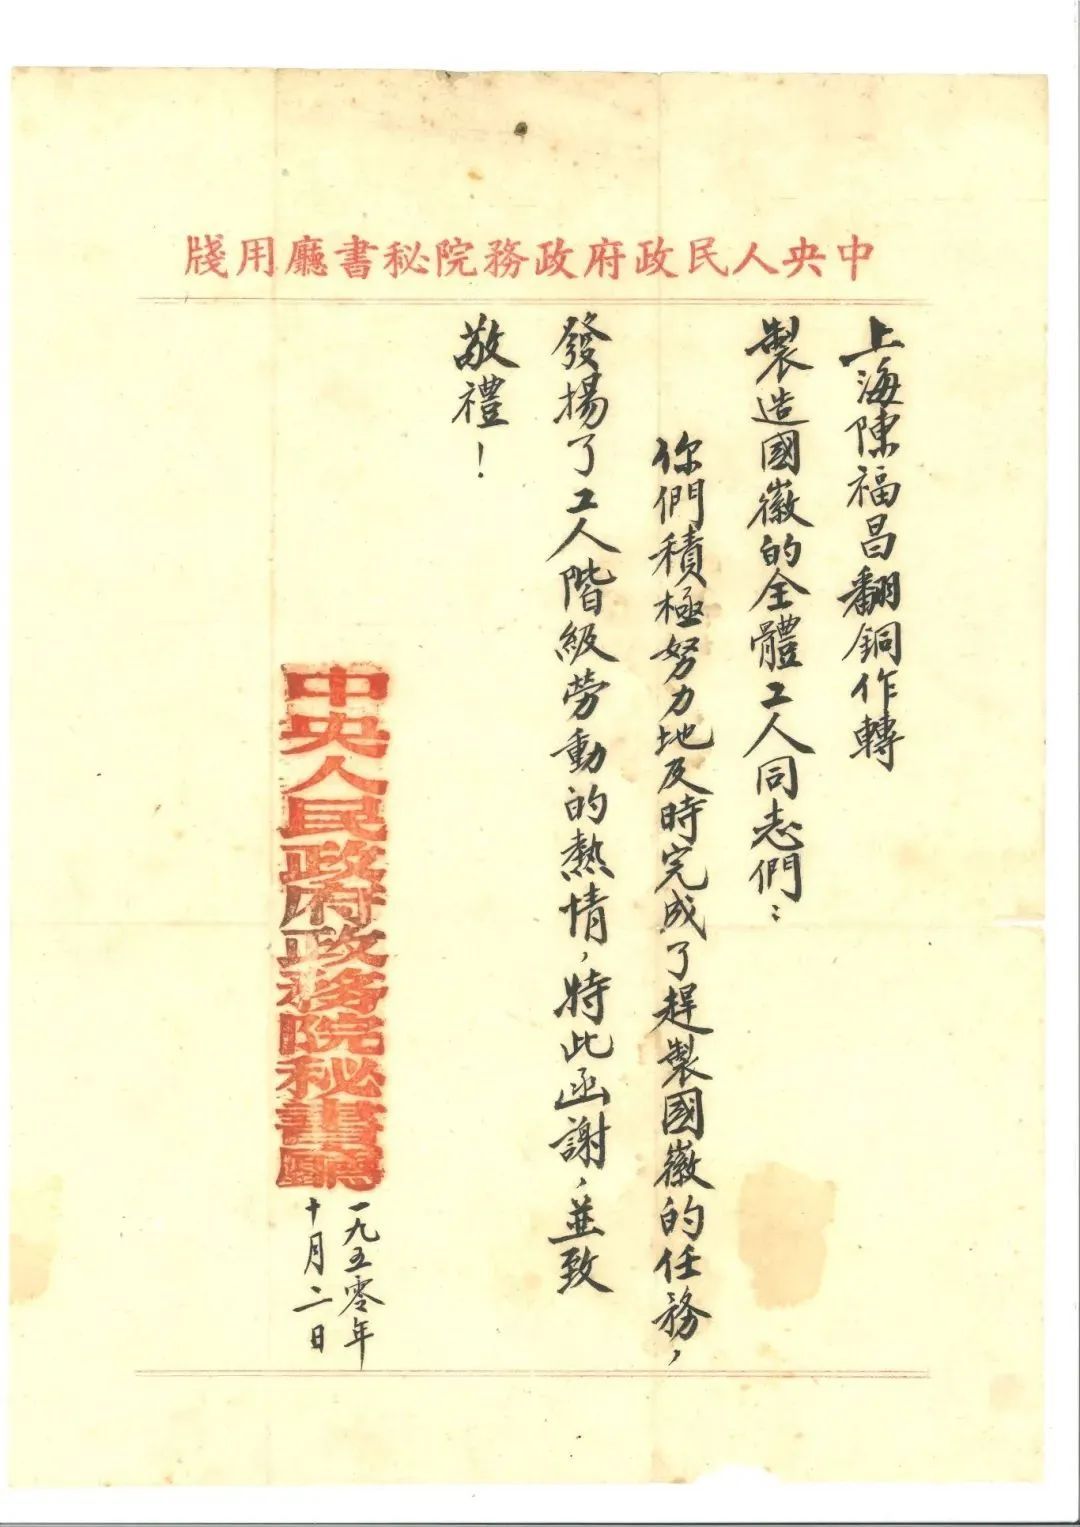 中央人民政府政務院秘書廳用牋
上海陳福昌翻銅作轉
製造國徽的全體工人同志們：
你們積極努力地及時完成了趕製國徽的任務，
發揚了工人階級勞動的熱情，特此函謝，並致
敬禮！
中央人民政府政務院秘書廳
一九五零年
十月二日